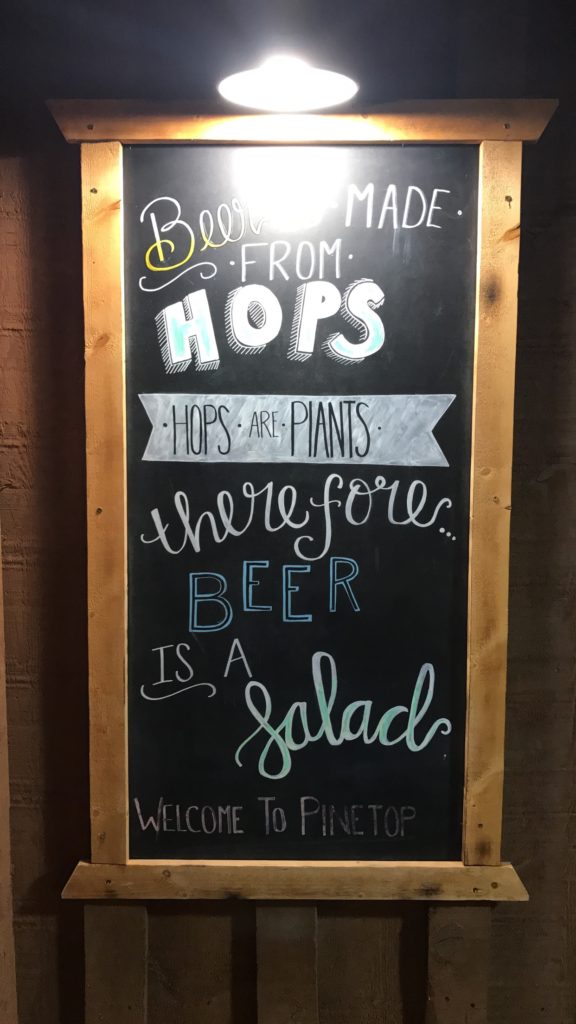 Beer is MADE·
·FROM·
HOPS
·HOPS·ARE·PLANTS·
therefore...
BEER
IS A
salad
WELCOME TO PINETOP